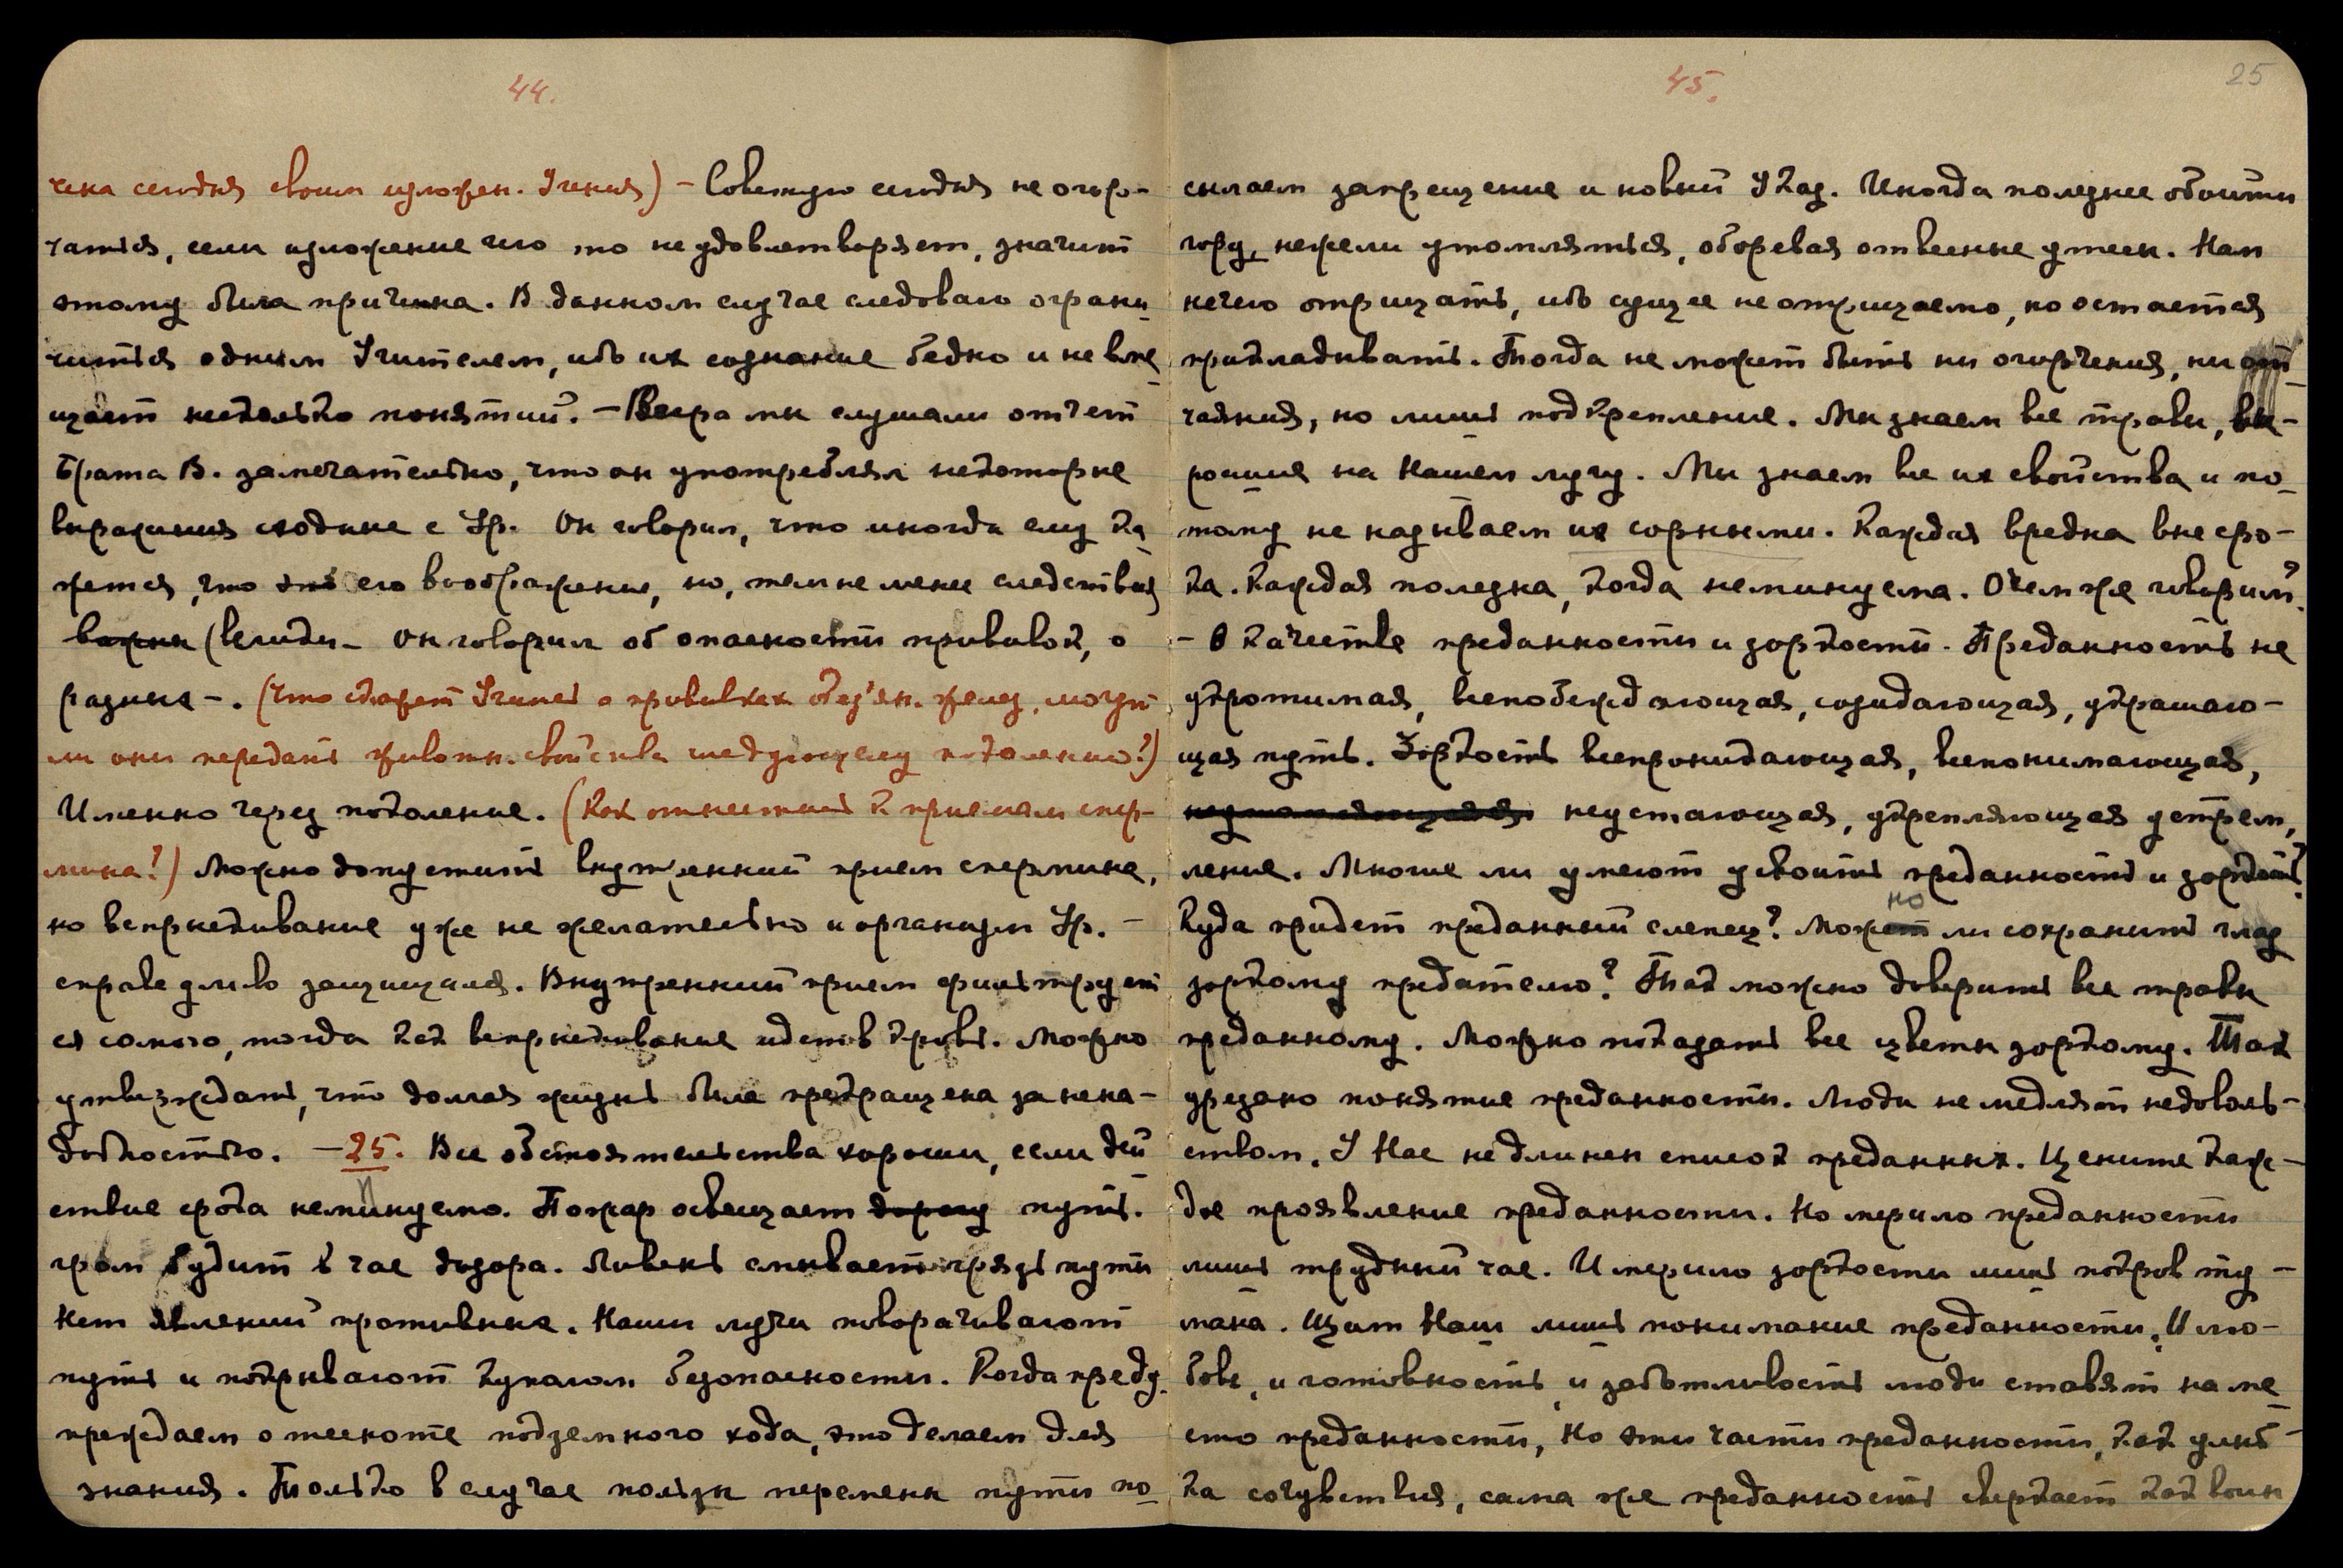 44.
чена сегодня своим изложен. Учения) – Советую сегодня не огор-
чаться, если изложение чего то не удовлетворяет, значит
этому была причина. В данном случае следовало ограни-
читься одним Учителем, ибо их сознание бедно и не вме-
щает несколько понятий. – Вчера мы слушали отчет
брата В. замечательно, что он употреблял некоторые
выражения сходные с Ур. Он говорил, что иногда ему ка-
жется, что это его воображение, но, тем не менее следствия
важны (всегда – он говорил об опасности прививок, о
разные –. (Что скажет Учитель о прививках обез'ян. желез, могут
ли они передать животн. свойства следующему поколению?)
Именно через поколение. (Как отнестись к приемам спер-
мина?) Можно допустить внутренний прием спермина,
но вспрыскивание уже не желательно и организм Ур. –
справедливо защищался. Внутренний прием фильтрует
ся самого, тогда как вспрыскивание идет в кровь. Можно
утверждать, что долгая жизнь была прекращена за нена-
добностью. – 25. Все обстоятельства хороши, если дей-
ствие срока неминуемо. Пожар освещает дорогу путь.
гром будит в час дозора. Ливень смывает грязь пути
Нет явлений противных. Наши лучи поворачивают
путь и покрывают куполом безопасности. Когда преду-
преждаем о тесноте подземного хода, это делаем для
знания. Только в случае пользы перемены пути по-
45.
25
сылаем запрещение и новый Указ. Иногда полезнее обойти
гору, нежели утомляться, оборевая отвесные утесы. Нам
нечего отрицать, ибо сущее не отрицаемо, но остается
прикладывать. Тогда не может быть ни огорчения, ни от-
чаяния, но лишь подкрепление. Мы знаем все травы, вы-
росшие на Нашем лугу. Мы знаем все их свойства и по-
тому не называем их сорными. Каждая вредна вне сро-
ка. Каждая полезна, когда неминуема. О чем же говорим?
– О качестве преданности и зоркости. Преданность не
укротимая, всепобеждающая, созидающая, украшаю-
щая путь. Зоркость всепроникающая, всепонимающая,
неутомляющаяся неустающая, укрепляющая устрем-
ление. Многие ли умеют усвоить преданность и зоркость?
Куда придет преданный слепец? Может но ли сохранить глаз
зоркому предателю? Так можно доверить все травы
преданному. Можно показать все цветы зоркому. Так
урезано понятие преданности. Люди не медлят недоволь-
ством. У Нас не длинен список преданных. Цените каж-
дое проявление преданности. Но мерило преданности
лишь трудный час. И мерило зоркости лишь покров ту-
мана. Щит Наш лишь понимание преданности. И лю-
бовь, и готовность, и заботливость люди ставят на ме-
сто преданности, Но эти части преданности, как улыб-
ка сочувствия, сама же преданность сверкает как воин